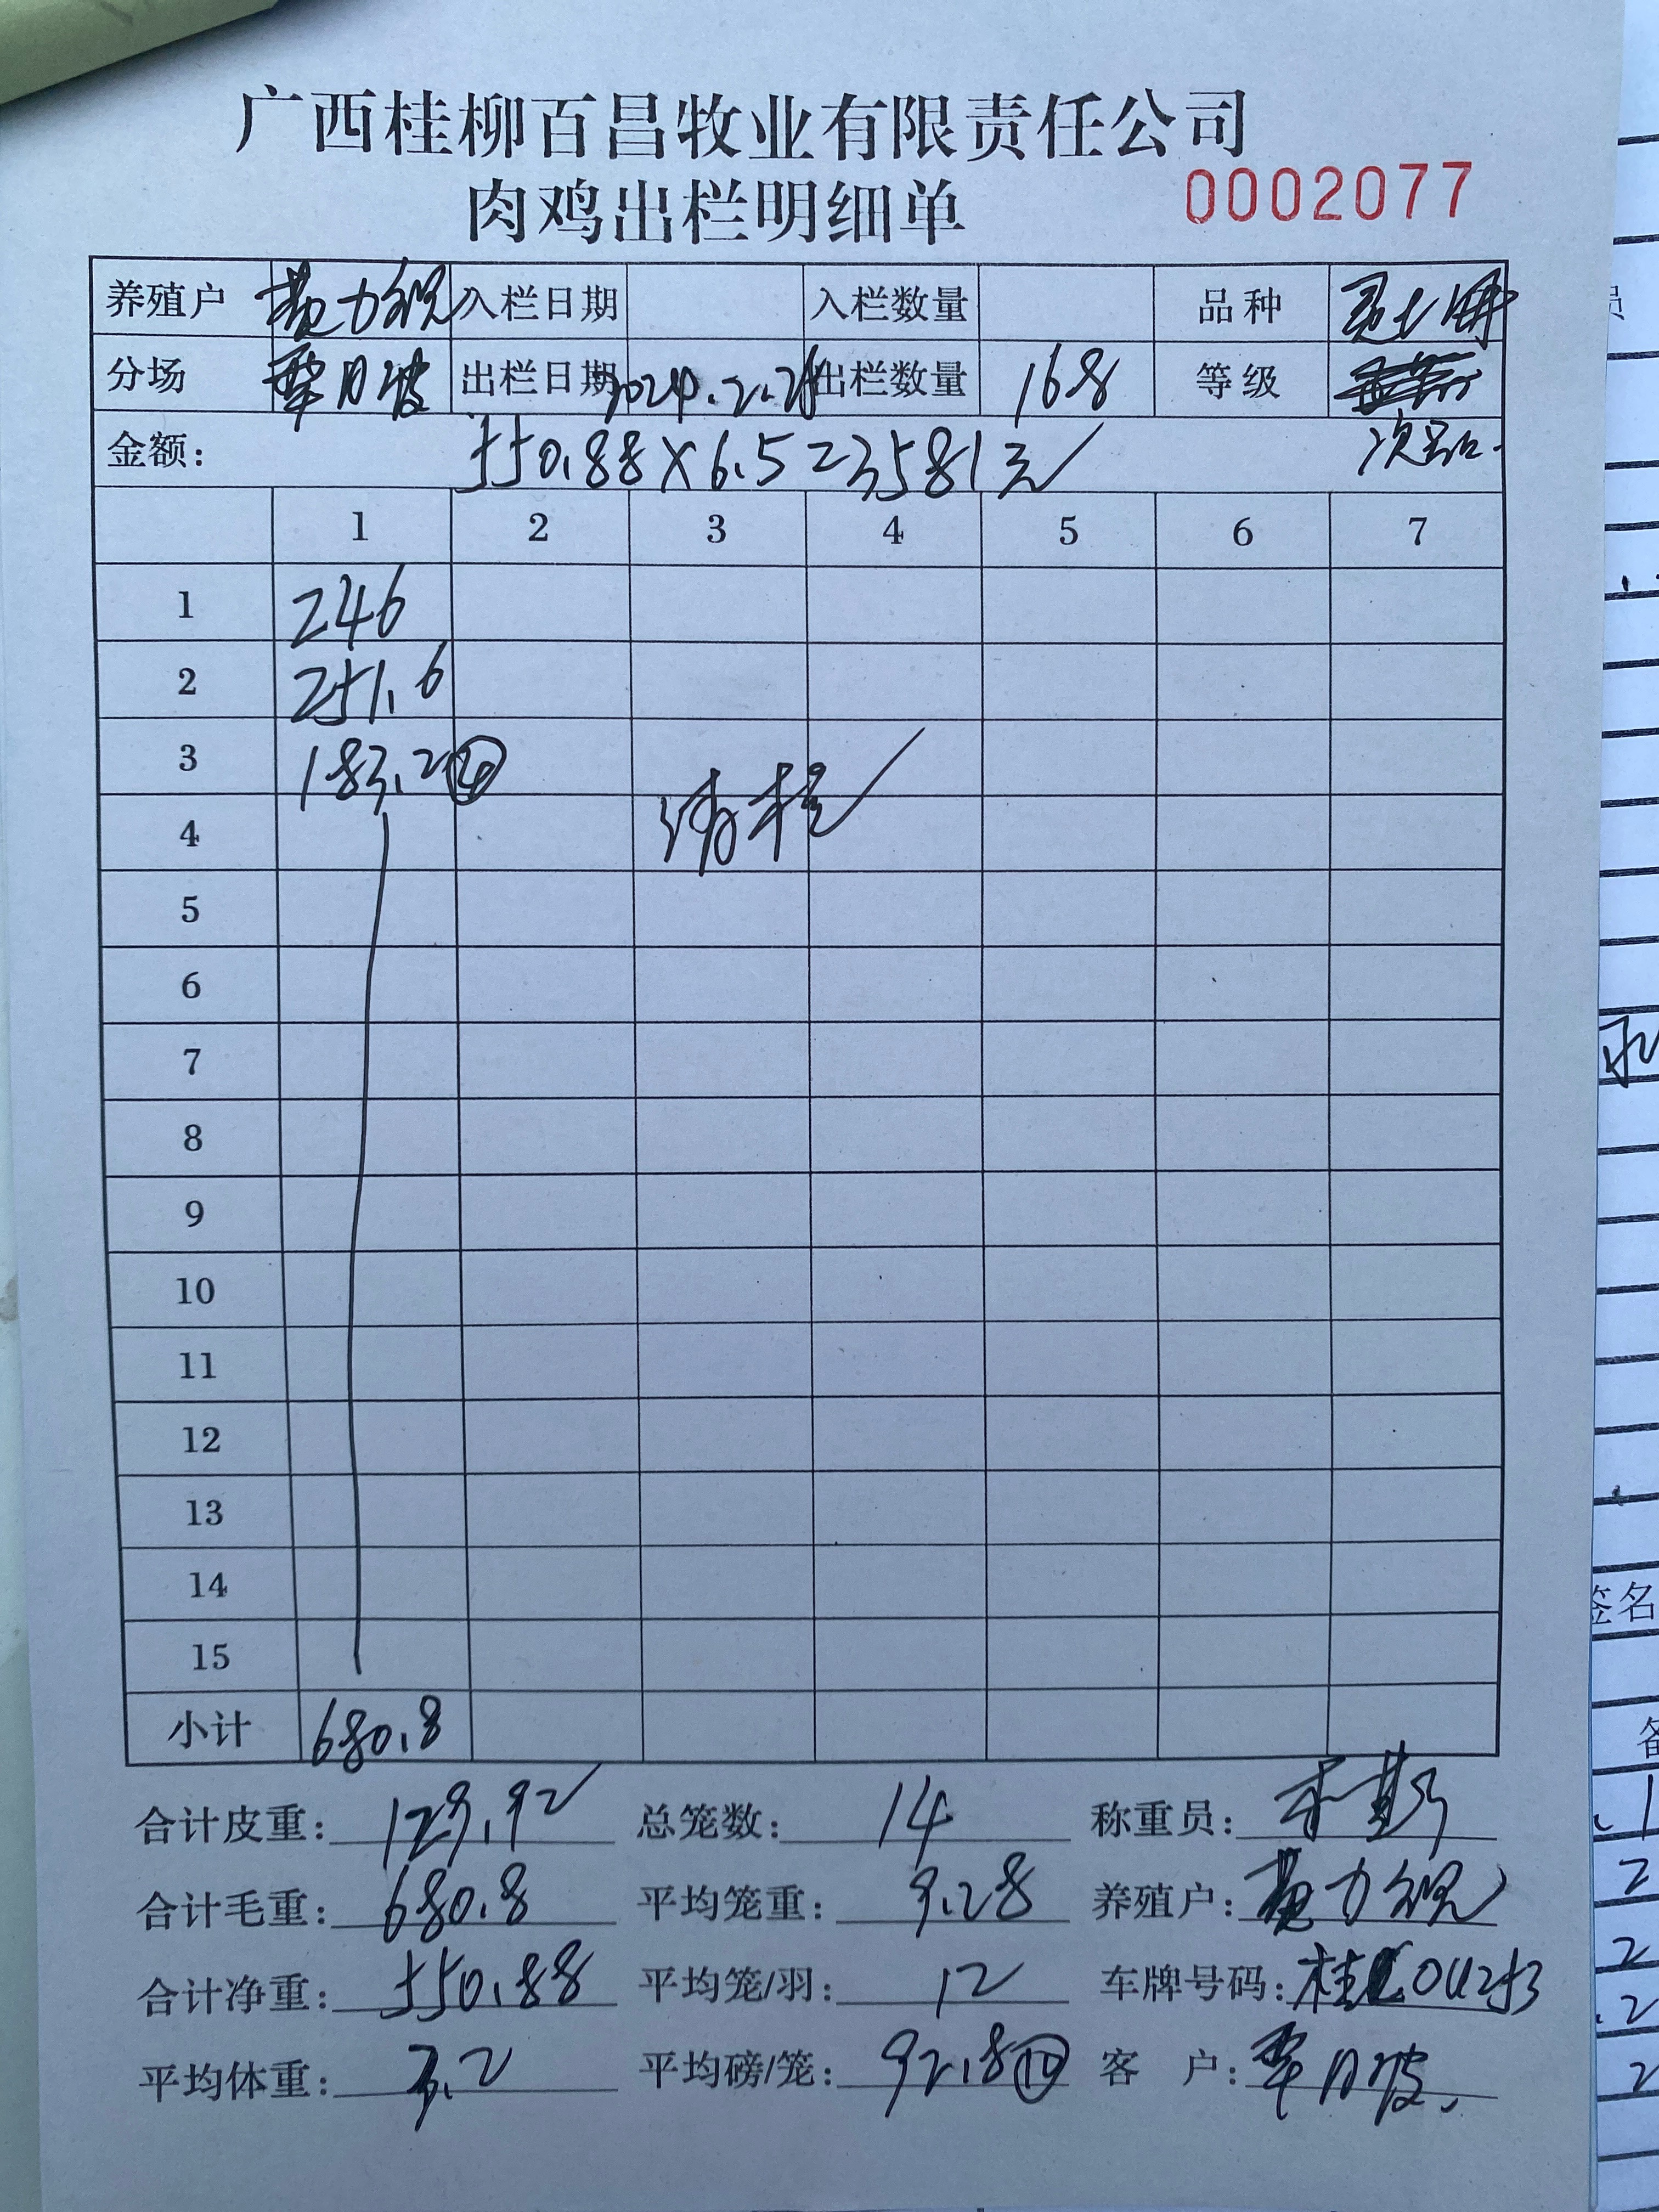 广西桂柳百昌牧业有限责任公司
肉鸡出栏明细单 0002077
养殖户 入栏日期 入栏数量 品种
分场 覃月波 出栏日期 2024.2.28 出栏数量 168 等级
金额: 550.88×6.5=3581元 次品.
1 2 3 4 5 6 7
1 246
2 251.6
3 183.2 ④ 清栏
4
5
6
7
8
9
10
11
12
13
14
15
小计 680.8
合计皮重: 129.92 总笼数: 14 称重员:
合计毛重: 680.8 平均笼重: 9.28 养殖户:
合计净重: 550.88 平均笼/羽: 12 车牌号码: 桂
平均体重: 3.2 平均磅/笼: 92.8 ⑩ 客 户: 覃月波.
签名